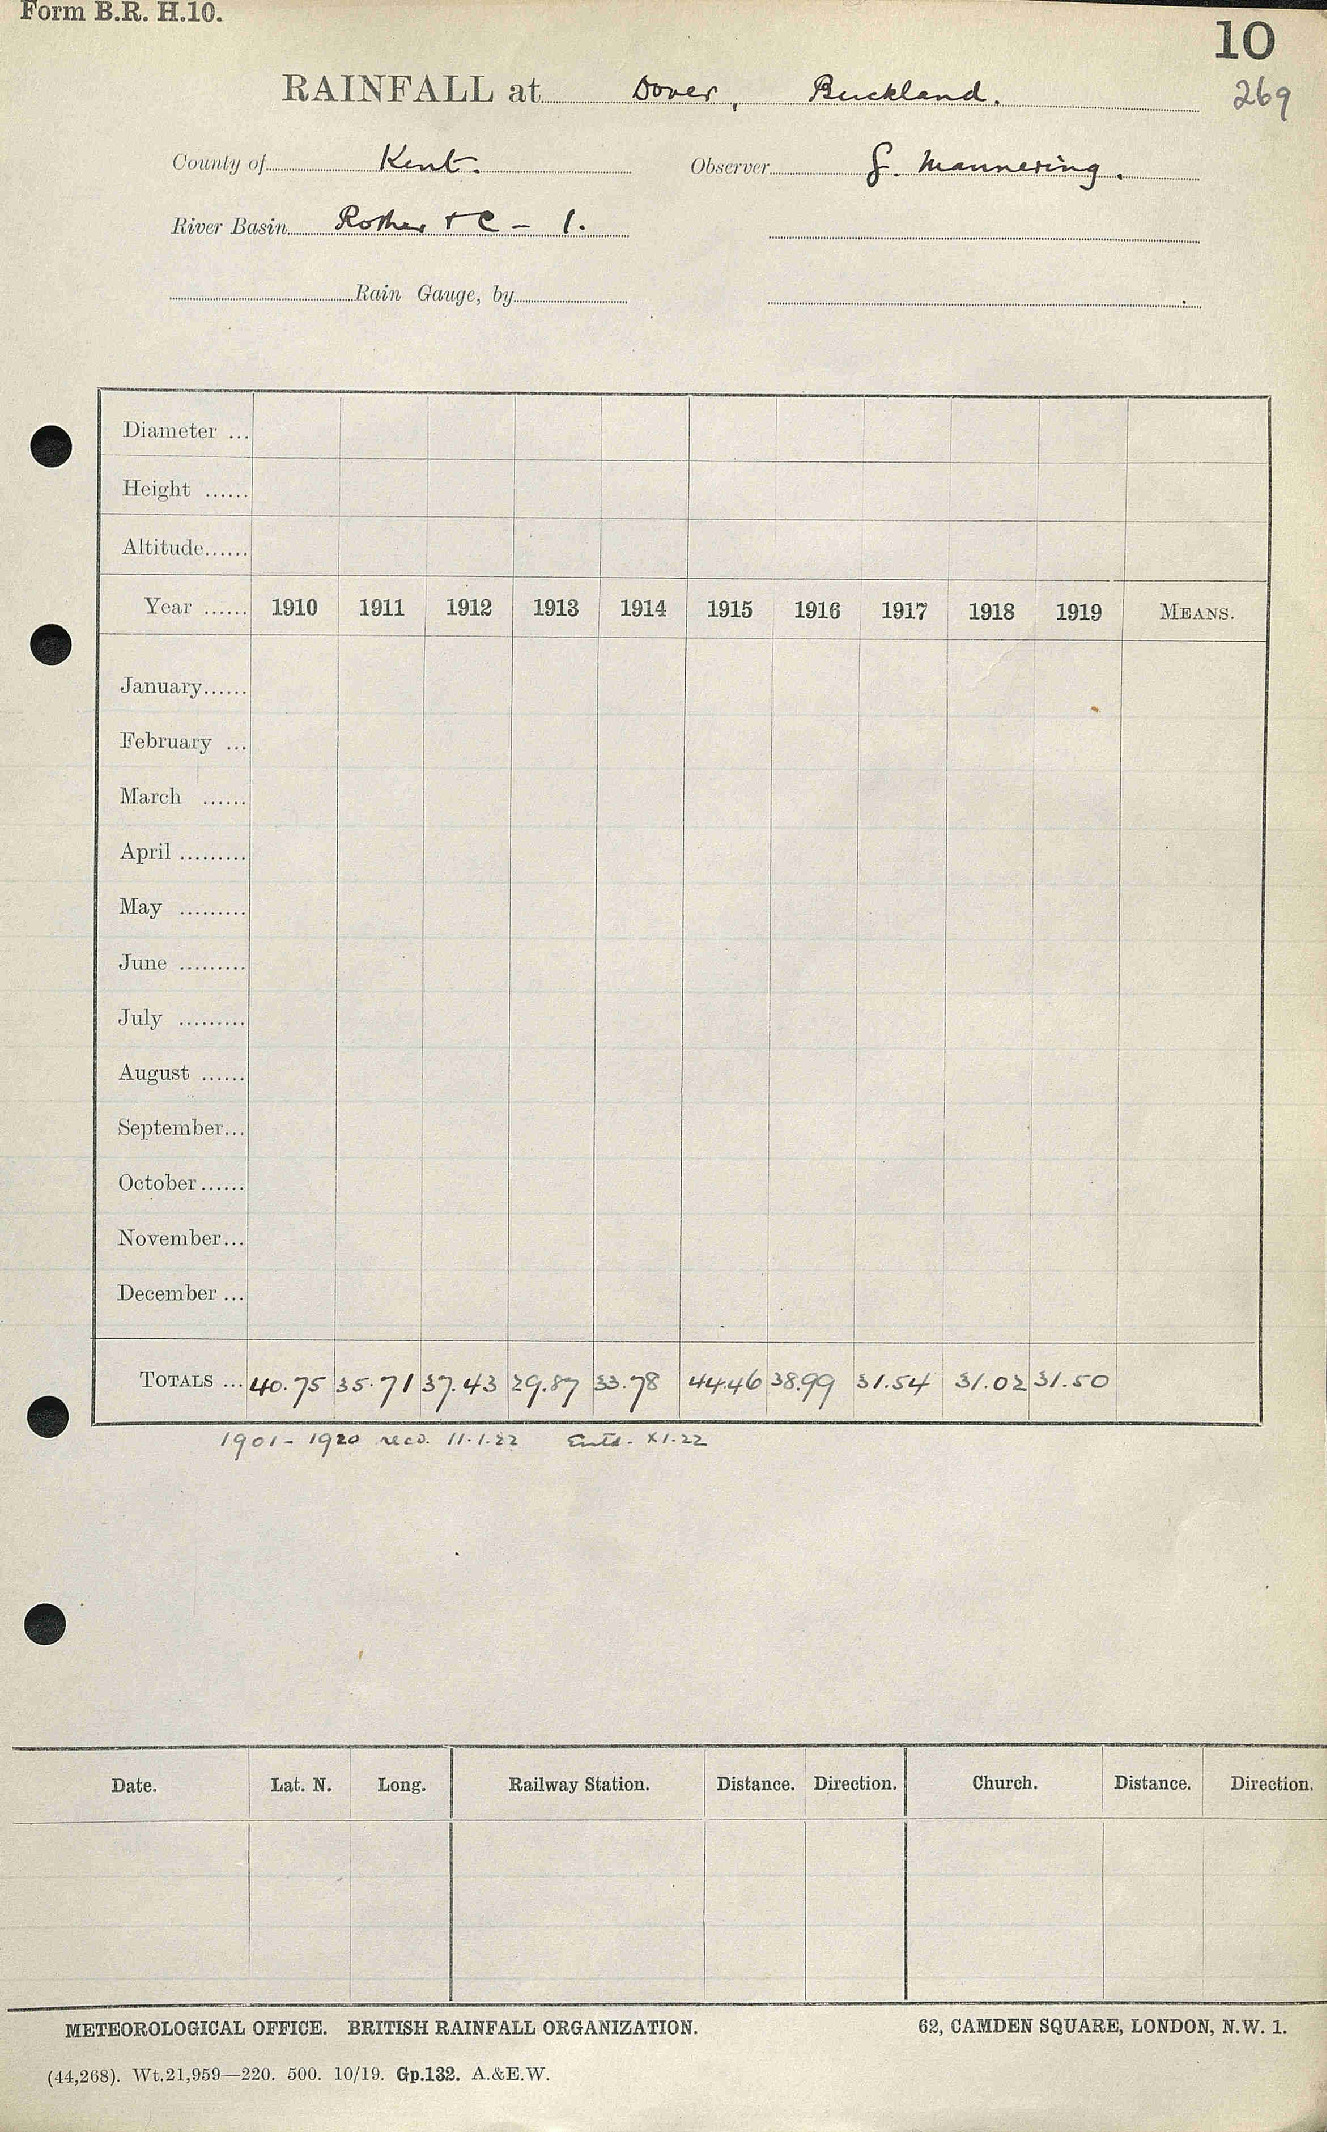 Form B.R. H.10.
10
RAINFALL at Dover, Buckland.
269
County of Kent. Observer G. Mannering.
River Basin Rother + C - 1.
Rain Gauge, by
Diameter ...
Height ......
Altitude......
Year ...... 1910 1911 1912 1913 1914 1915 1916 1917 1918 1919 MEANS.
January......
February ...
March ......
April .........
May .........
June .........
July .........
August ......
September...
October......
November...
December ...
TOTALS ... 40.75 35.71 37.43 29.87 33.78 44.46 38.99 31.54 31.02 31.50
1901 - 1920 recd. 11.1.22 Entd. XI.22
Date. Lat. N. Long. Railway Station. Distance. Direction. Church. Distance. Direction.
METEOROLOGICAL OFFICE. BRITISH RAINFALL ORGANIZATION. 62, CAMDEN SQUARE, LONDON, N.W. 1.
(44,268). Wt.21,959—220. 500. 10/19. Gp.132. A.&E.W.